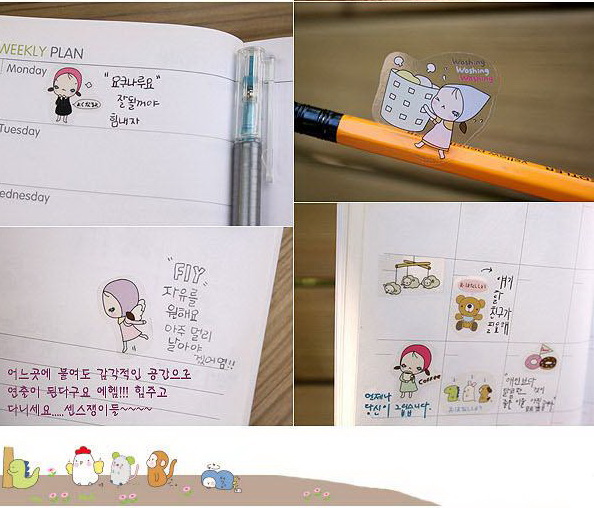 WEEKLY PLAN
Monday
"요쿠나루요"
잘될꺼야
힘내자
Tuesday
Wednesday
Washing
Washing
Washing
"FIY"
자유를
원해요
아주 멀리
날아야
겠어염!!
어느곳에 붙여도 감각적인 공간으로
연출이 된다구요 에헴!!! 힘주고
다니세요.....센스쟁이들~~~~
얘기
할
친구가
필요해
Coffee
언제나
당신이 그립습니다.